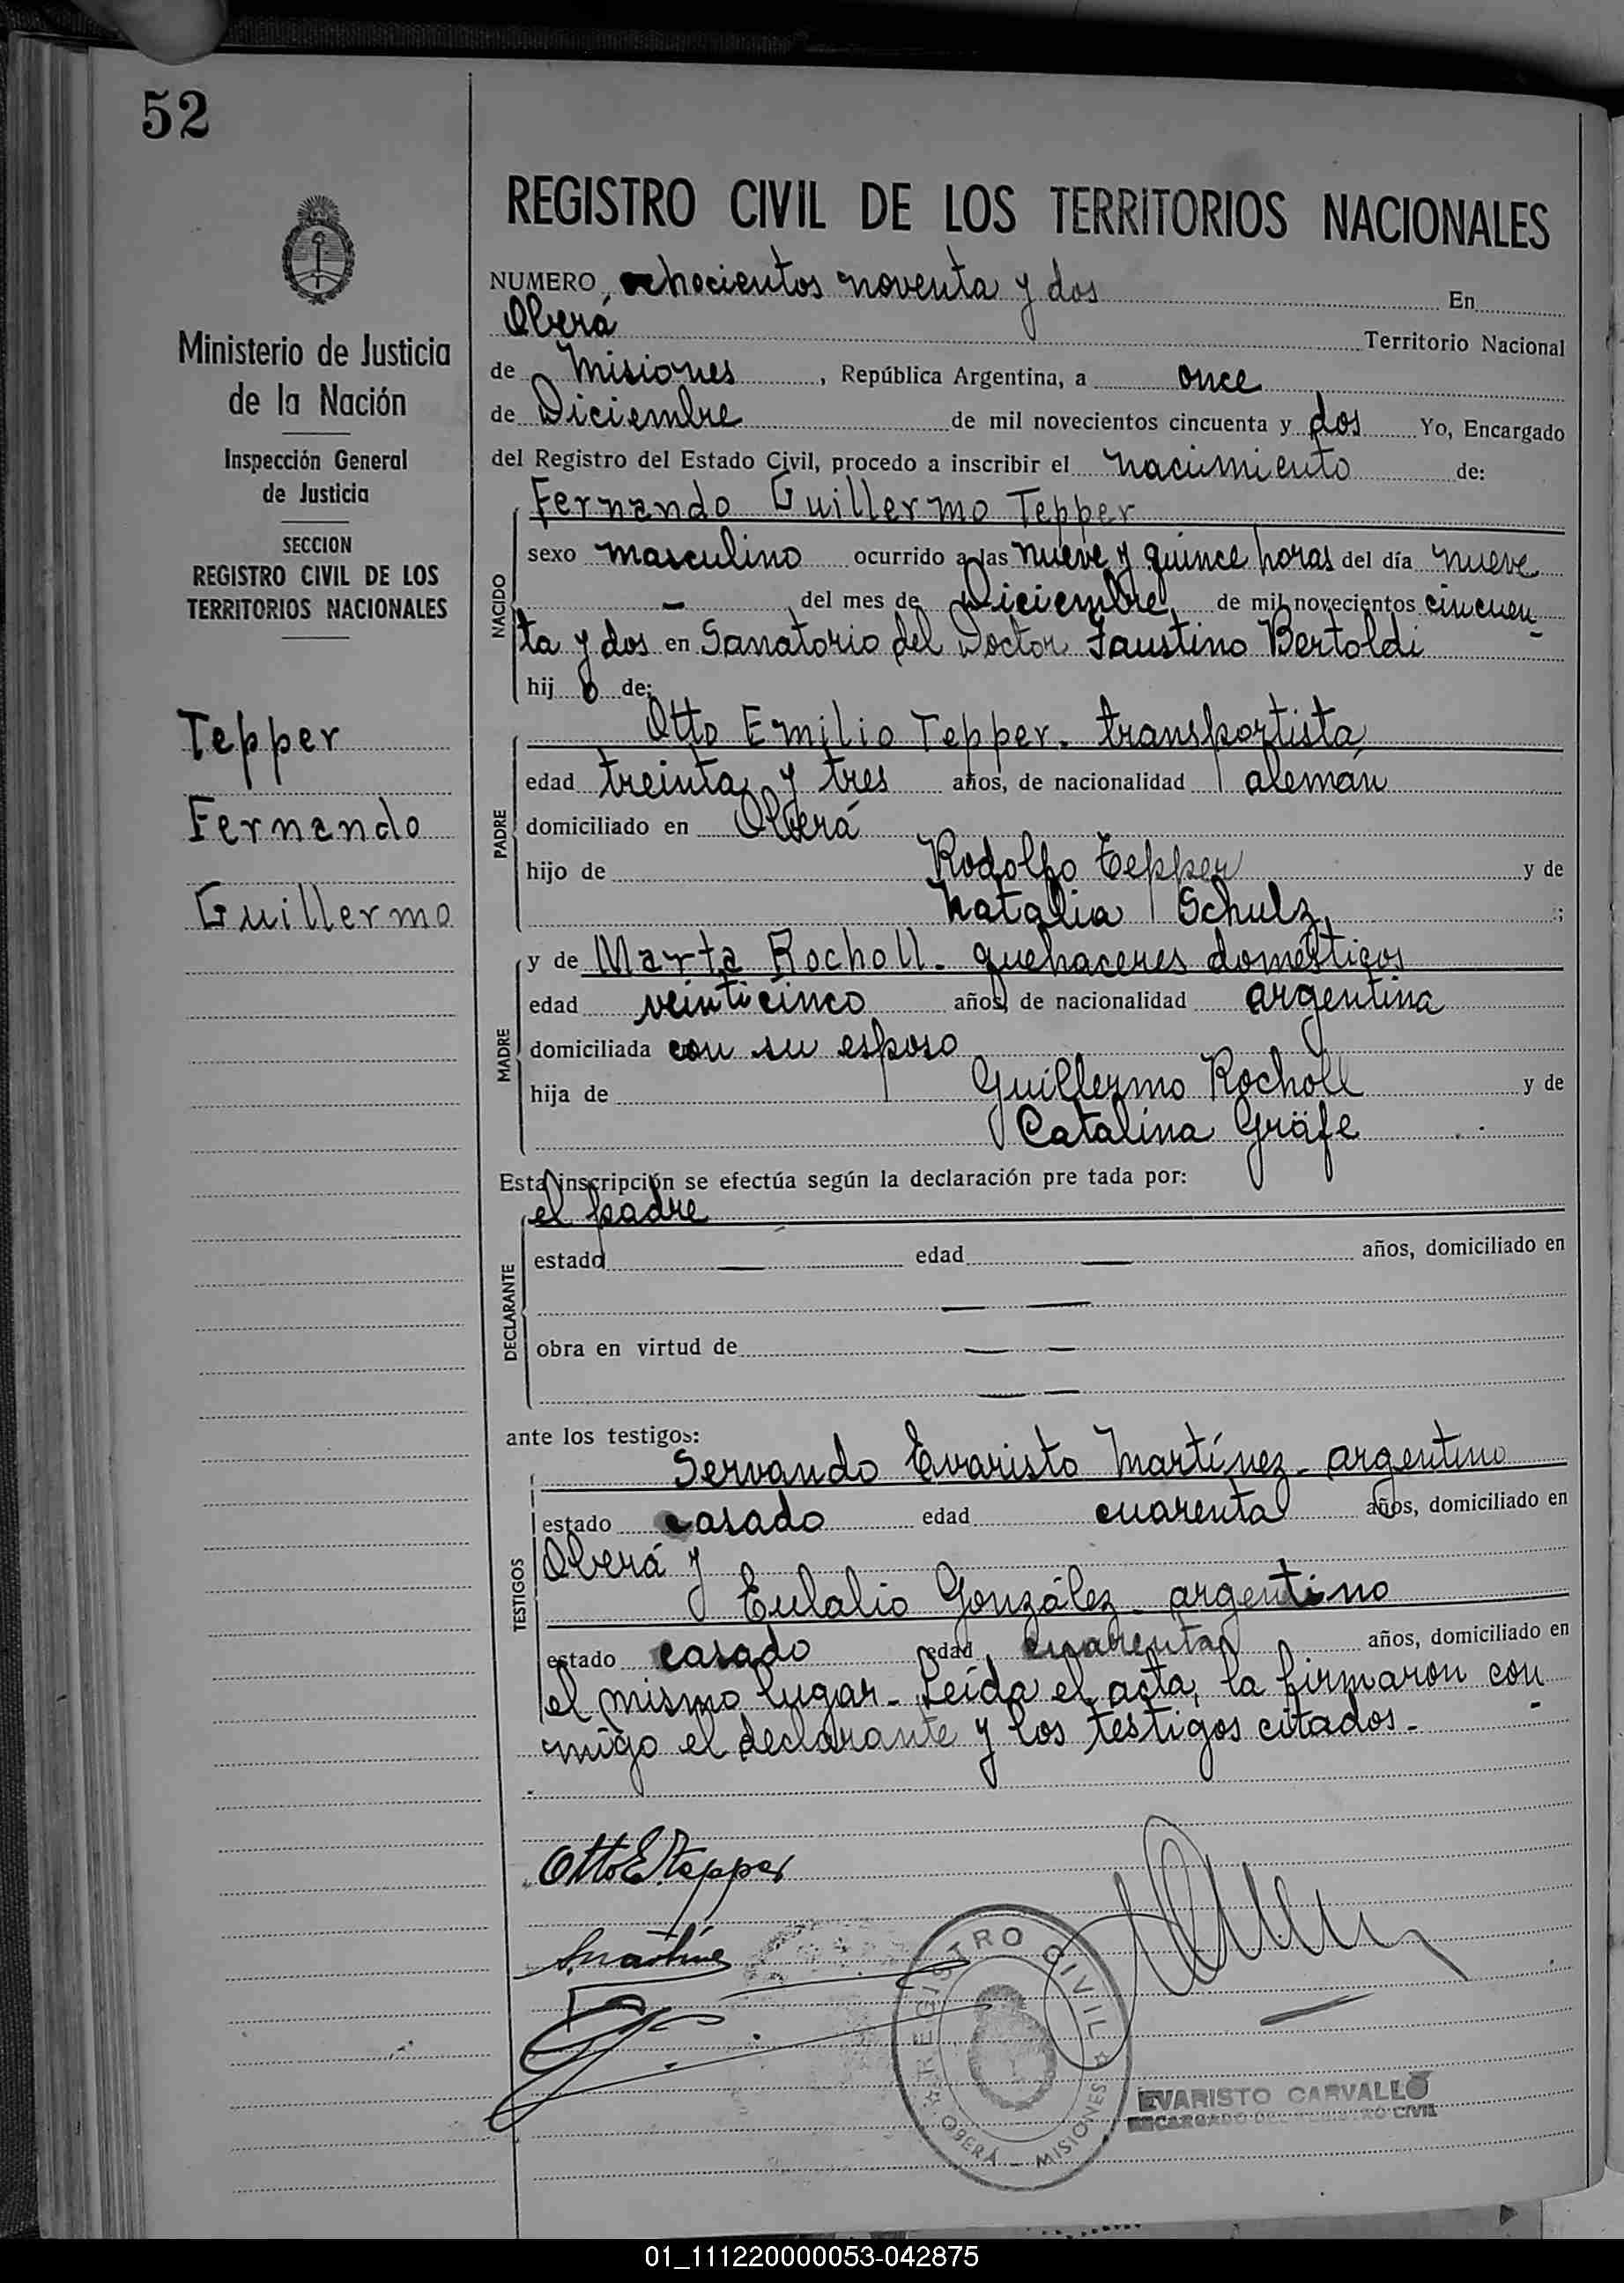 52
Ministerio de Justicia
de la Nación
Inspección General
de Justicia
SECCION
REGISTRO CIVIL DE LOS
TERRITORIOS NACIONALES
Tepper
Fernando
Guillermo
REGISTRO CIVIL DE LOS TERRITORIOS NACIONALES
NUMERO ochocientos noventa y dos En
Oberá Territorio Nacional
de Misiones, República Argentina, a once
de Diciembre de mil novecientos cincuenta y dos Yo, Encargado
del Registro del Estado Civil, procedo a inscribir el nacimiento de:
NACIDO
Fernando Guillermo Tepper
sexo masculino ocurrido a las nueve y quince horas del día nueve
- del mes de Diciembre de mil novecientos cincuen-
ta y dos en Sanatorio del Doctor Faustino Bertoldi
hij o de:
PADRE
Otto Emilio Tepper. transportista
edad treinta y tres años, de nacionalidad alemán
domiciliado en Oberá
hijo de Rodolfo Tepper y de
Natalia Schulz ;
MADRE
y de Marta Rocholl. quehaceres domésticos
edad veinticinco años, de nacionalidad argentina
domiciliada con su esposo
hija de Guillermo Rocholl y de
Catalina Gräfe
Esta inscripción se efectúa según la declaración pre tada por:
DECLARANTE
el padre
estado — edad — años, domiciliado en
— —
obra en virtud de — —
— —
ante los testigos:
TESTIGOS
Servando Evaristo Martínez - argentino
estado casado edad cuarenta años, domiciliado en
Oberá y
Eulalio González - argentino
estado casado edad cuarenta años, domiciliado en
el mismo lugar - Leída el acta, la firmaron con-
migo el declarante y los testigos citados.-
Otto E. Tepper
S. Martínez
REGISTRO CIVIL
OBERÁ - MISIONES
EVARISTO CARVALLO
ENCARGADO DEL REGISTRO CIVIL
01_111220000053-042875